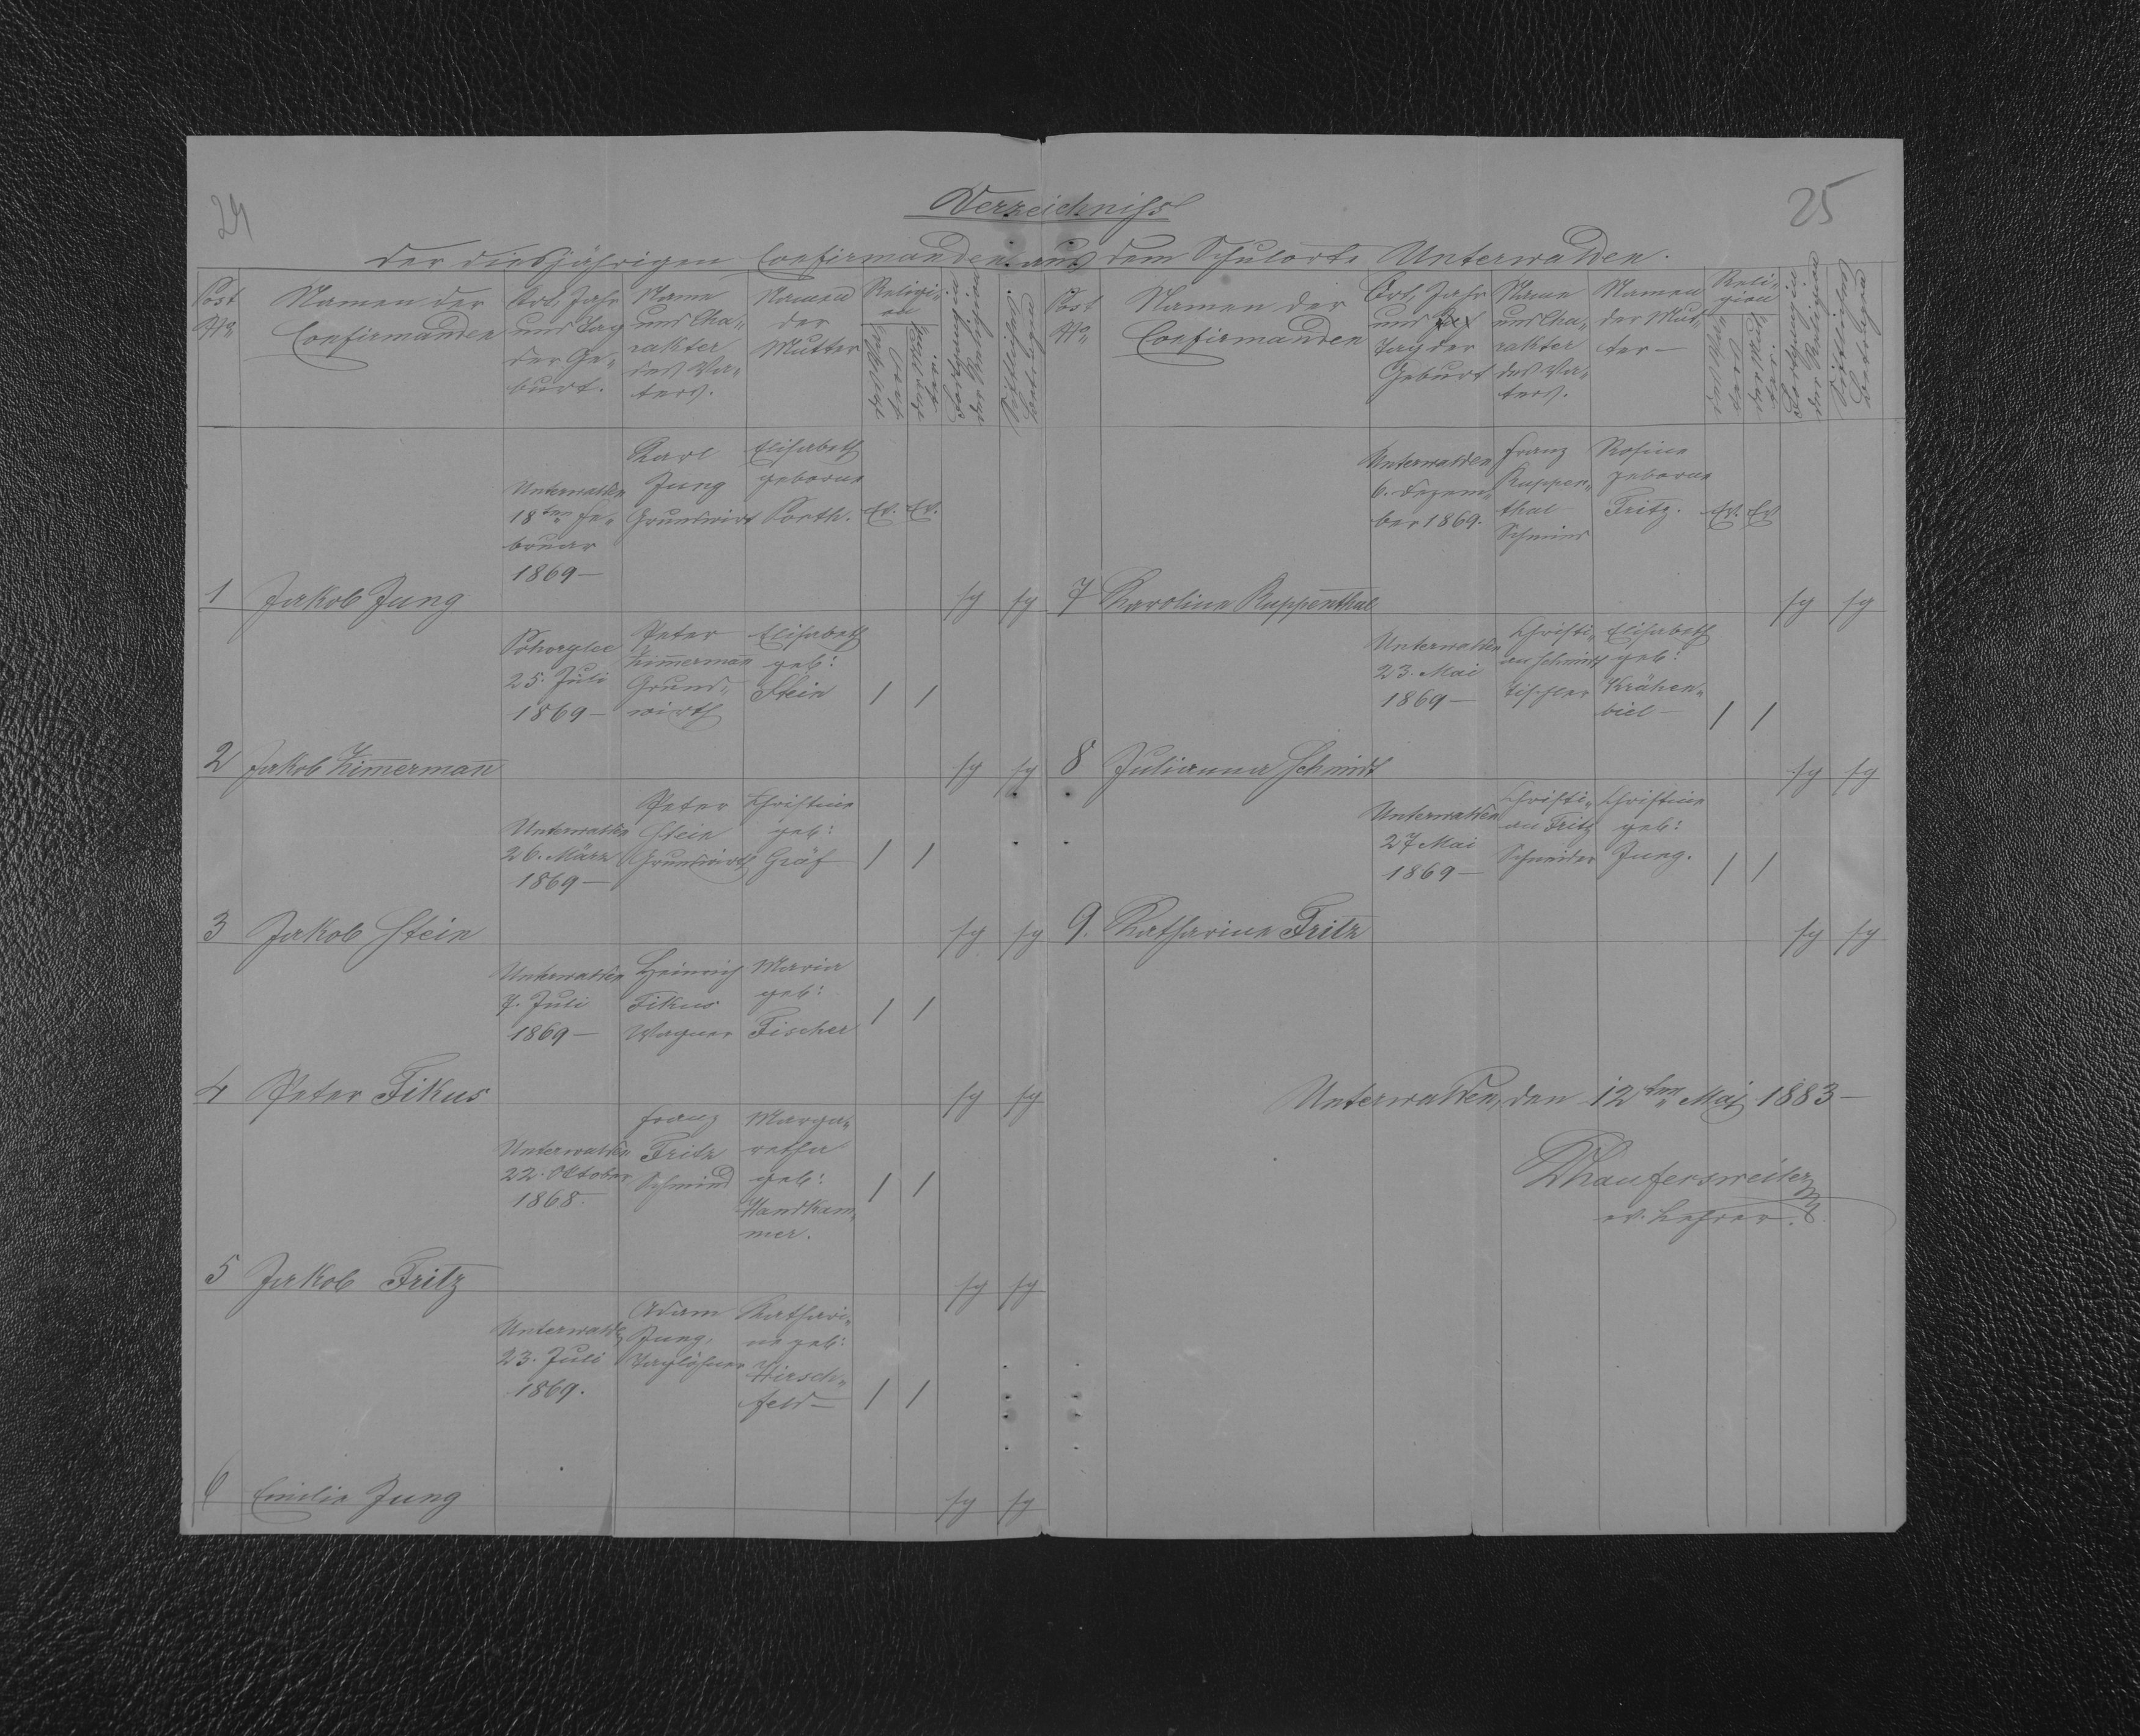 24
25
Verzeichniss
der diesjährigen Confirmanden aus dem Schulorte Unterwalden.
Post No
Namen der Confirmanden
Ort, Jahr und Tag der Ge„ burt.
Name und Cha„ rakter des Va„ ters.
Namen der Mutter
Religi„ on
des Vaters
der Mutter
Fortgang in der Religion
Sittliches Betragen
1 Jakob Jung
Unterwalden
18ten Fe„
bruar
1869 —
Karl
Jung
Grundwirt
Elisabeth
geborne
Porth.
Ev. Ev.
sg sg
2 Jakob Zimerman
Pohorylec
25. Juli
1869 —
Peter
Zimerman
Grund„
wirth
Elisabeth
geb:
Stein
/ /
sg sg
3 Jakob Stein
Unterwalden
26. März
1869 —
Peter
Stein
Grundwirth
Christine
geb:
Gräf
/ /
sg sg
4 Peter Fikus
Unterwalden
7. Juli
1869 —
Heinrich
Fikus
Wagner
Maria
geb:
Fischer
/ /
sg sg
5 Jakob Fritz
Unterwalden
22. Oktober
1868.
Franz
Fritz
Schmied
Marga„
retha
geb:
Handkam„
mer.
/ /
sg sg
6 Emilie Jung
Unterwalden
23. Juli
1869.
Adam
Jung,
Taglöhner
Kathari„
ne geb:
Hirsch„
feld —
/ /
sg sg
Post No
Namen der Confirmanden
Ort, Jahr und Tag der Geburt
Name und Cha„ rakter des Va„ ters.
Namen der Mut„ ter —
Reli„ gion
des Va„ ters
der Mut„ ter.
Fortgang in der Religion
Sittliches Betragen
7 Karoline Ruppenthal
Unterwalden
6. Dezem„
ber 1869.
Franz
Ruppen„
thal
Schmied
Rosine
geborne
Fritz.
Ev. Ev
sg sg
8 Julianna Schmidt
Unterwalden
23. Mai
1869 —
Christi„
an Schmidt
Tischler
Elisabeth
geb:
Krähen„
biel —
/ /
sg sg
9. Katharine Fritz
Unterwalden
27 Mai
1869 —
Christi„
an Fritz
Schneider
Christine
geb:
Jung.
/ /
sg sg
Unterwalden, den 12ten Mai 1883 —
Khaufersweiler
ev. Lehrer.